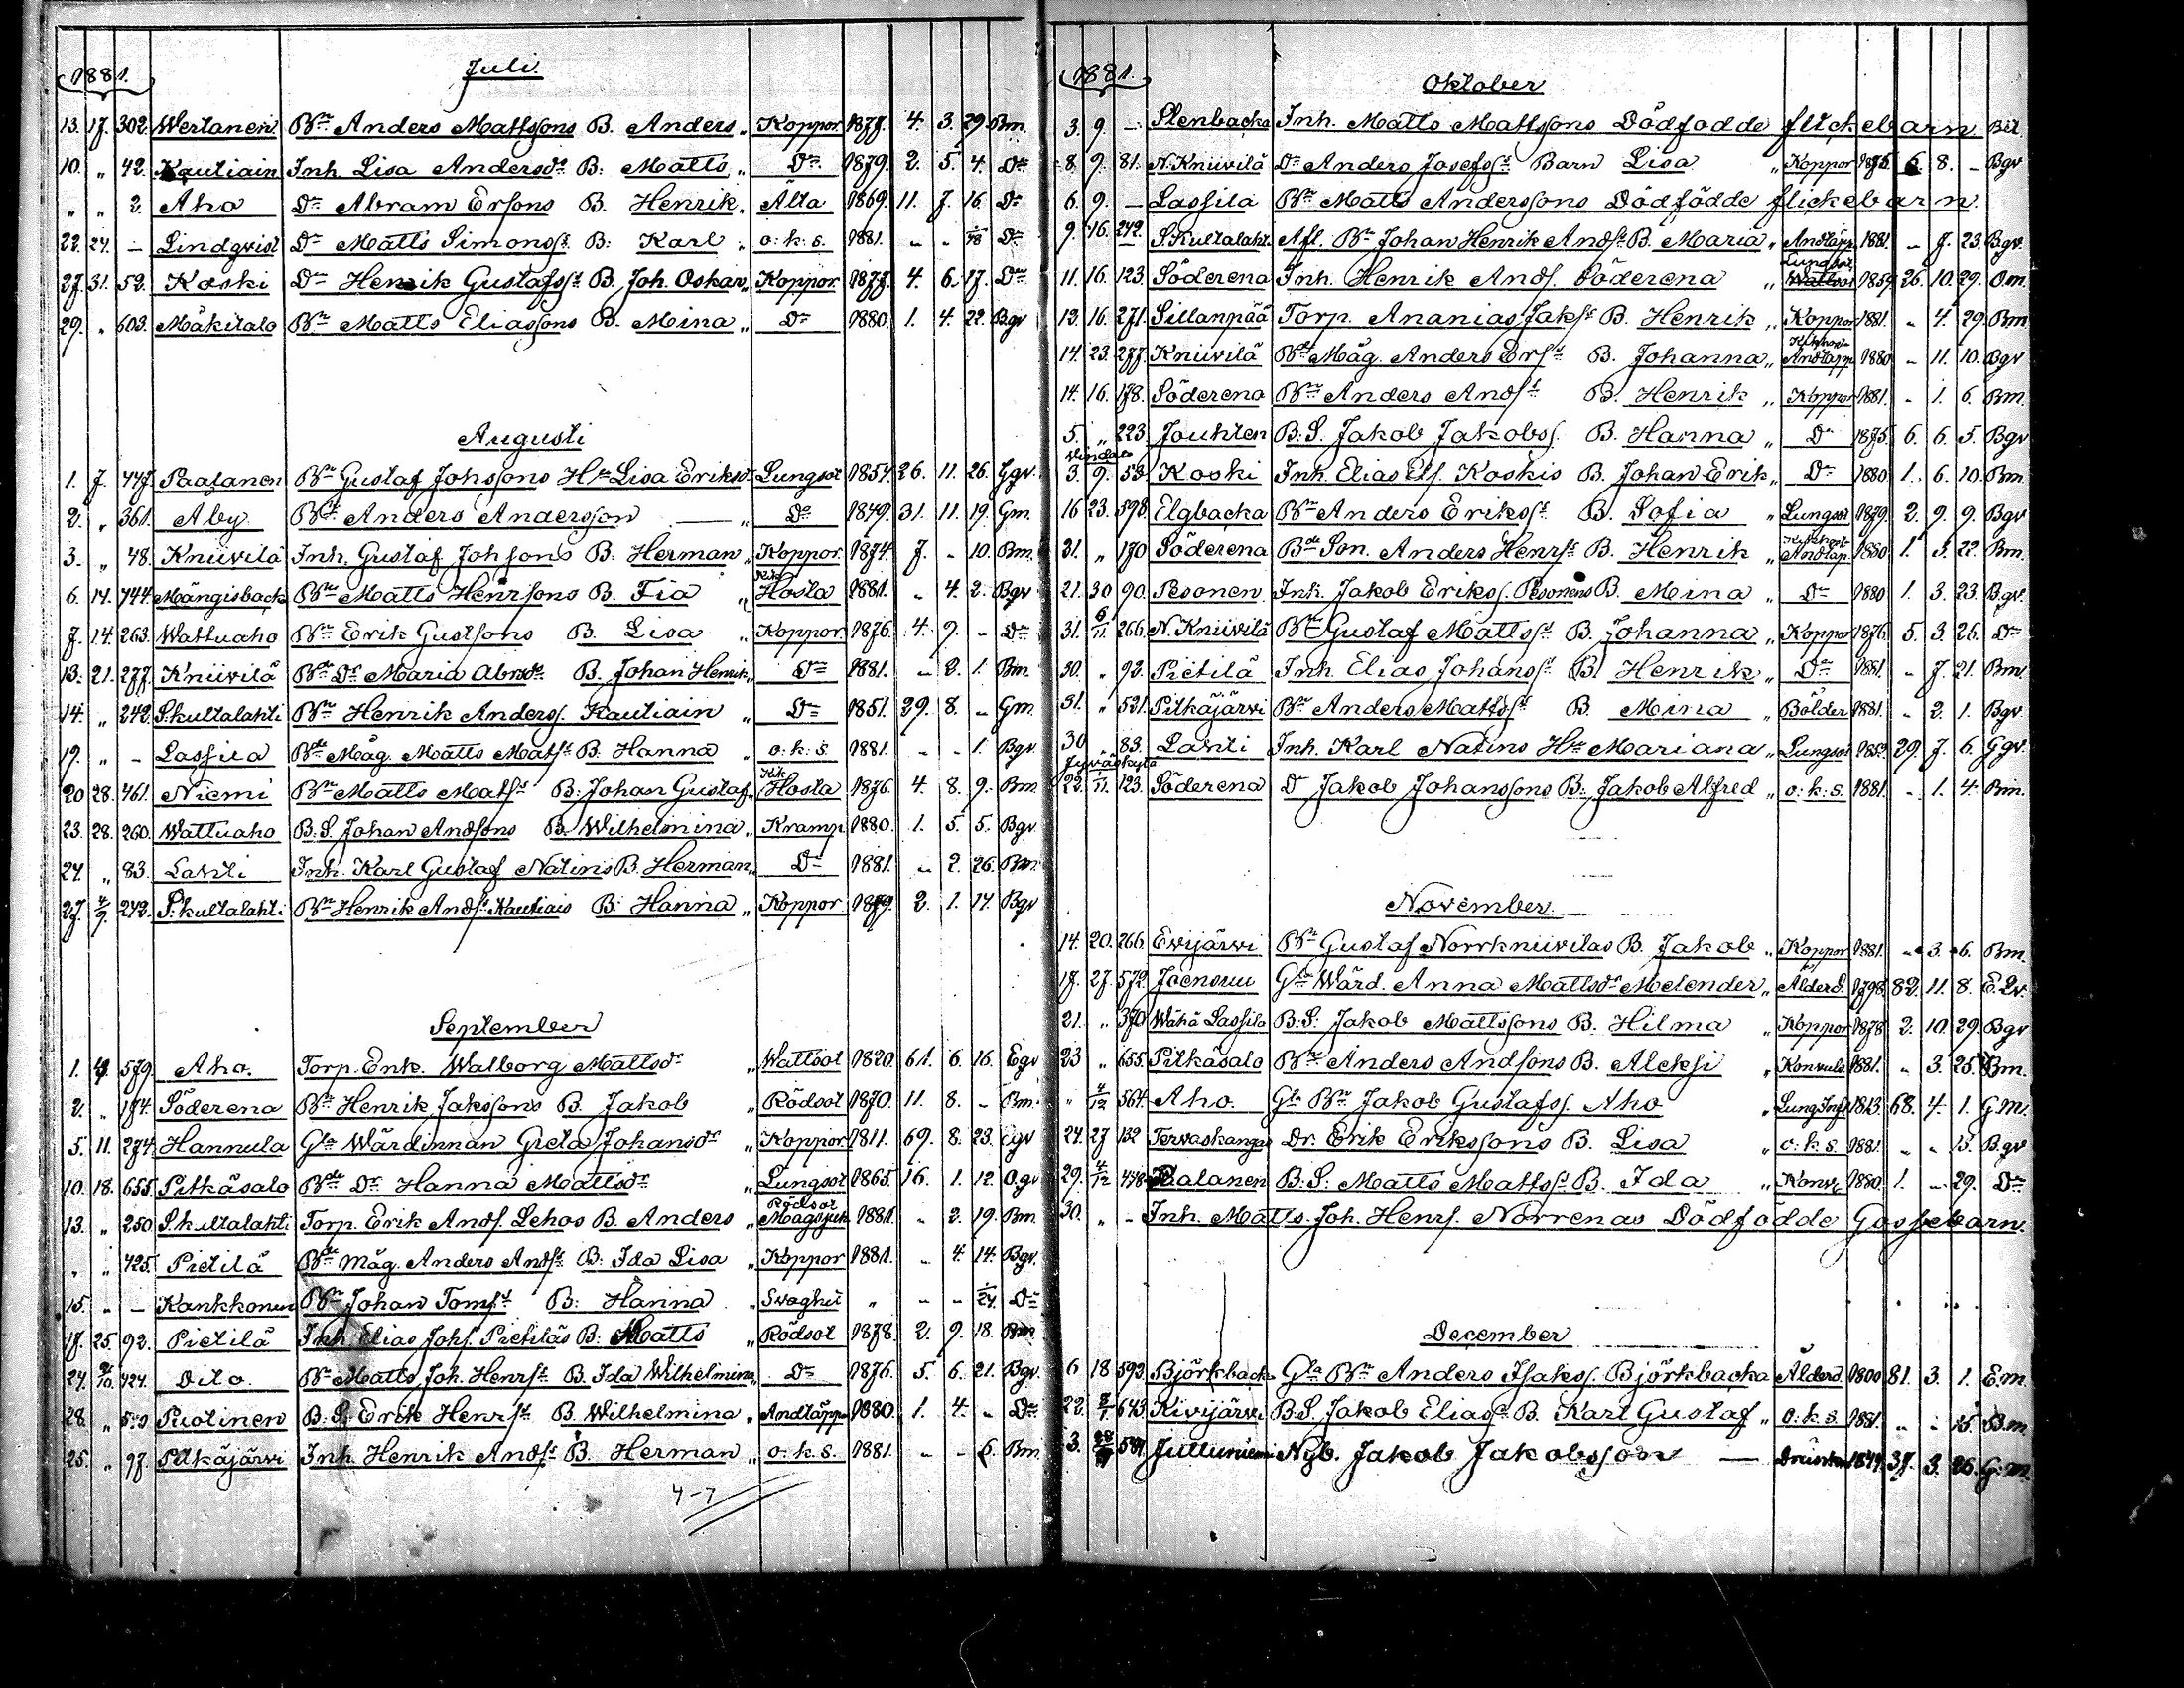 1881.
Juli.
13. 17. 302. Wertanen Bn Anders Mattssons B. Anders „ Koppor 1877. 4. 3. 29. Bm.
10. „ 42. Kautiain Inh. Lisa Andersdr B: Matts „ Do 1879. 2. 5. 4. Do
„ „ 2. Aho Do Abram Ersons B. Henrik „ Älta 1869. 11. 7. 16. Do
22. 24. – Lindqvist Do Matts Simonss: B: Karl „ o: k: s. 1881. „ „ Do
27. 31. 52. Koski Do Henrik Gustafss: B. Joh. Oskar „ Koppor 1877. 4. 6. 17. Do
29. „ 603. Mäkitalo Bn Matts Eliassons B. Mina „ Do 1880. 1. 4. 22. Bgv
Augusti
1. 7. 447. Paalanen Bn Gustaf Johssons Hu Lisa Eriksd. Lungsot 1854. 26. 11. 26. Ggv.
2. „ 361. Aby Bn Anders Andersson — „ Do 1849. 31. 11. 19. Gm.
3. „ 48. Kniivilä Inh. Gustaf Johsons B. Herman „ Koppor. 1874. 7. „ 10. Bm.
6. 14. 744. Mångisbacka Bn Matts Henrsons B. Fia „ Kik Hosta 1881. „ 4. 2. Bgv
7. 14. 263. Wattuaho Bn Erik Gustsons B. Lisa „ Koppor 1876. 4. 9. „ Do
13. 21. 277. Kniivilä Bde Dr Maria Abrsdr B. Johan Henrik „ Do 1881. „ 2. 1. Bm.
14. „ 242. S.kultalahti Bn Henrik Anders. Kautiain „ Do 1851. 29. 8. „ Gm.
19. „ – Lassila Bde Måg. Matts Matss: B. Hanna „ o: k: s. 1881. „ „ 1. Bgv.
20 28. 461. Niemi Bn Matts Matss B: Johan Gustaf „ Kik Hosta 1876. 4. 8. 9. Bm
23. 28. 260. Wattuaho B.S. Johan Andsons B. Wilhelmina „ Kramp 1880. 1. 5. 5. Bgv.
24. „ 83. Lahti Inh. Karl Gustaf Natins B. Herman „ Do 1881. „ 2. 26. Bm.
27. 4/9. 242. S.kultalahti Bn Henrik Ands: Kautiais B: Hanna „ Koppor 1879. 2. 1. 14. Bgv
September
1. 4. 579 Aho. Torp. Enk. Walborg Mattsdr „ Wattsot 1820. 61. 6. 16. Egv
2. „ 174. Söderena Bn Henrik Jakssons B. Jakob „ Rödsot 1870. 11. 8. „ Bm.
5. 11. 274. Hannula Gla Wärdinnan Greta Johansdr „ Koppor 1811. 69. 8. 23. Egv
10. 18. 655. Pitkäsalo Bde Dr Hanna Mattsdr „ Lungsot 1865. 16. 1. 12. Ogv
13. „ 250. S.kultalahti Torp. Erik Ands. Lehos B. Anders „ Rödsot Magsjuk 1881. „ 2. 19. Bm.
„ „ 425. Pietilä Bde Måg. Anders Ands: B: Ida Lisa „ Koppor 1881. „ 4. 14. Bgv.
15. „ – Kankkonen Bn Johan Toms: B: Hanna „ Svaghet „ „ „ 1/24. Do
17. 25. 92. Pietilä Inh. Elias Johs. Pietiläs B: Matts „ Rödsot 1878. 2. 9. 18. Bm
24. 2/10. 424. Dito. Bn Matts Joh. Henrs: B. Ida Wilhelmina „ Do 1876. 5. 6. 21. Bgv.
28. „ Pustinen B.S. Erik Henrs: B. Wilhelmina „ Andtäppa 1880. 1. 4. „ Do
25. „ 97. Pitkäjärvi Inh. Henrik Ands: B. Herman „ o: k: s. 1881. „ „ 6. Bm.
4-7
1881.
Oktober
3. 9. – Stenbacka Inh. Matts Mattsons Dödfödde flickebarn
8. 9. 81. N.Kniivilä Do Anders Josefss: Barn Lisa „ Koppor 1875. 6. 8. – Bgv
6. 9. – Lassila Bn Matts Anderssons Dödfödde flickebarn.
9. 16. 242. S.Kultalaht. Afl. Bn Johan Henrik Ands: B. Maria „ Andtäpp. 1881. „ 7. 23. Bgv.
11. 16. 123. Söderena Inh. Henrik Ands. Söderena „ Lungsot Wattsot 1859. 26. 10. 29. Om.
12. 16. 271. Sillanpää Torp. Ananias Jaks: B. Henrik „ Koppor 1881. „ 4. 29. Bm
14. 23. 277. Kniivilä Bde Måg. Anders Ers: B. Johanna „ Andtäpp 1880 „ 11. 10. Bgv
14. 16. 178. Söderena Bn Anders Ands: B. Henrik „ Koppor 1881. „ 1. 6. Bm.
5. „ 223. Jouhten B.S. Jakob Jakobs. B. Hanna „ Do 1875. 6. 6. 5. Bgv
Vindala
3. 9. 53. Koski Inh. Elias Els. Koskis B. Johan Erik „ Do 1880 1. 6. 10. Bm.
16 23. 598. Elgbacka Bn Anders Erikss: B. Sofia „ Lungsot 1879. 2. 9. 9. Bgv
31. „ 170 Söderena Bde Son. Anders Henrs: B. Henrik „ Kikhost Andtäp. 1880 1. 3. 22. Bm.
21. 30 90. Pesonen Inh. Jakob Erikss. Pesonens B. Mina „ Do 1880 1. 3. 23. Bgv.
31. 6/11. 266. N.Kniivilä Bn Gustaf Mattss: B. Johanna „ Koppor 1876. 5. 3. 26. Do
30. „ 92. Pietilä Inh. Elias Johanss: B. Henrik „ Do 1881. „ 7. 21. Bm.
31. „ 521. Pitkäjärvi Bn Anders Mattss: B. Mina „ Bölder 1881. „ 2. 1. Bgv.
30 „ 83. Lahti Inh. Karl Natins Hu Mariana „ Lungsot 1852. 29. 7. 6. Ggv.
Jyväskylä
22. 1/11. 123. Söderena Do Jakob Johanssons B: Jakob Alfred „ o: k: s. 1881. „ 1. 4. Bm.
November.
14. 20. 266. Evijärvi Bn Gustaf Norrkniivilas B. Jakob „ Koppor 1881. „ 3. 6. Bm.
17. 27. 572. Joensuu Gla Wärd. Anna Mattsdr Melender „ Ålderd. 1798. 82. 11. 8. E.Qv.
21. „ 370 Wähä Lassila B.S: Jakob Mattssons B. Hilma „ Koppor 1878. 2. 10. 29. Bgv
23 „ 655. Pitkäsalo Bn Anders Andsons B. Aleksi „ Konvuls 1881. „ 3. 25. Bm.
„ 4/12 564. Aho. Gla Bn Jakob Gustafss. Aho „ Lung.Inf. 1813. 68. 4. 1. G.M.
24. 27 132 Tervaskangas Dr. Erik Erikssons B. Lisa „ o: k: s. 1881. „ „ 13. B.gv
29. 4/12 448 Palanen B.S: Matts Matss: B. Ida „ Konv. 1880. 1. „ 29. Do
30. „ – Inh. Matts Joh. Henrs. Norrenas Dödfödde Gossebarn.
December
6 18 593. Björkbacka Gla Bn Anders Isakss. Björkbacka Ålderd. 1800 81. 3. 1. E.m.
22. 643. Kivijärvi B.S. Jakob Eliass: B. Karl Gustaf „ o: k: s. 1881. „ „ 15. B.m.
3. 587. Julluniemi Nyb. Jakob Jakobsson — 1844. 37. 3. 26. G.m.